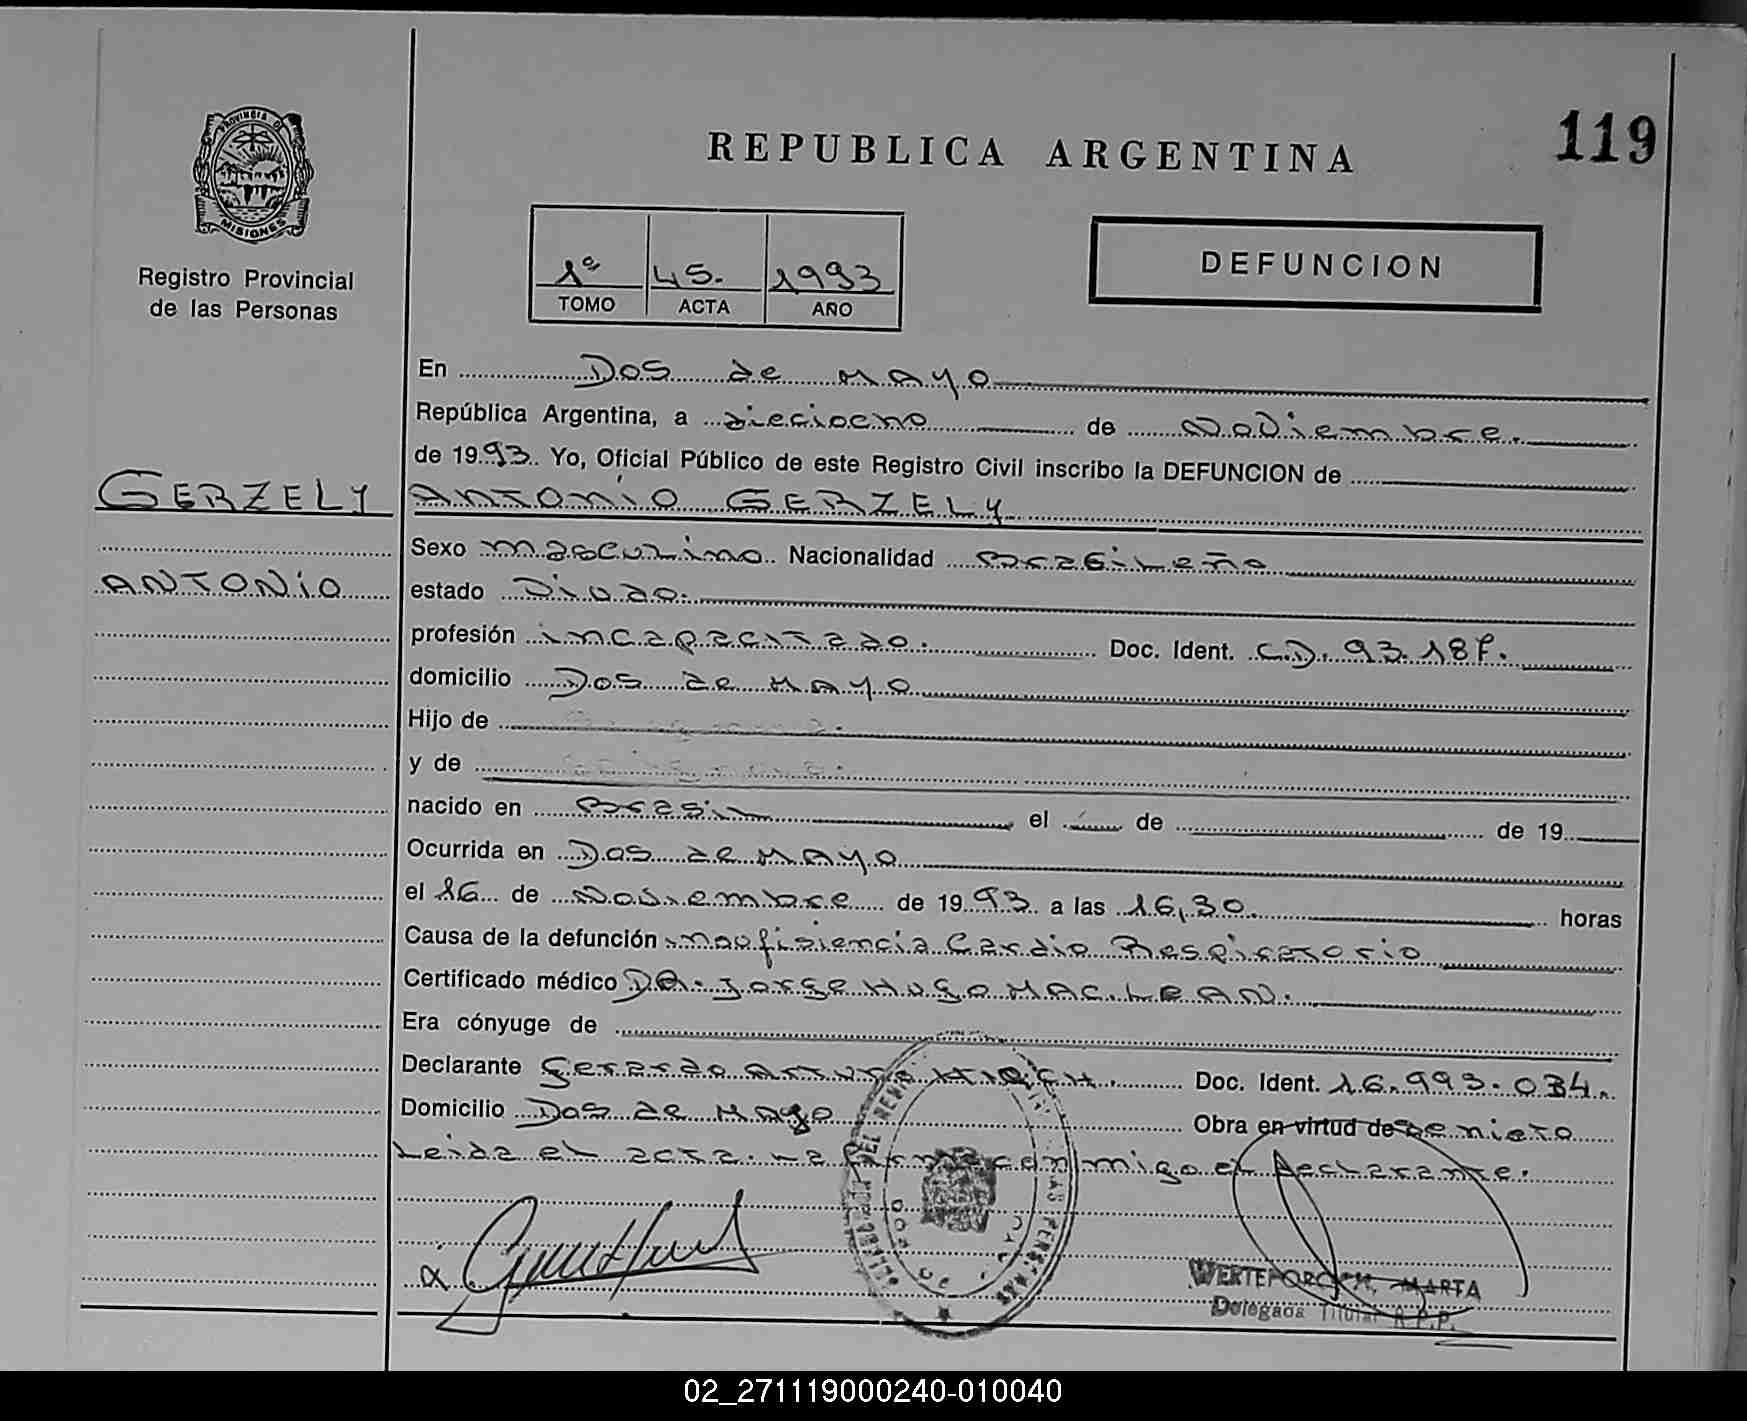 PROVINCIA DE
MISIONES
Registro Provincial
de las Personas
GERZELY
ANTONIO
REPUBLICA ARGENTINA
119
1º 45. 1993
TOMO ACTA AÑO
DEFUNCION
En Dos de MAYO
República Argentina, a dieciocho de Noviembre.
de 1993. Yo, Oficial Público de este Registro Civil inscribo la DEFUNCION de
ANTONIO GERZELY
Sexo masculino. Nacionalidad Brasileña
estado Viudo.
profesión incapacitado. Doc. Ident. C.D. 93.187.
domicilio Dos de MAYO
Hijo de
y de
nacido en Brasil el de de 19
Ocurrida en Dos de MAYO
el 16 de Noviembre de 1993 a las 16,30. horas
Causa de la defunción Cardio Respiratorio
Certificado médico DR. Jorge Hugo MAC.LEAN.
Era cónyuge de
Declarante Gerardo Arturo Doc. Ident. 16.993.034.
Domicilio Dos de Mayo Obra en virtud de de nieto
Leida el acta. La firma conmigo el declarante.
MARTA
Delegada Titular R.P.P.
02_271119000240-010040